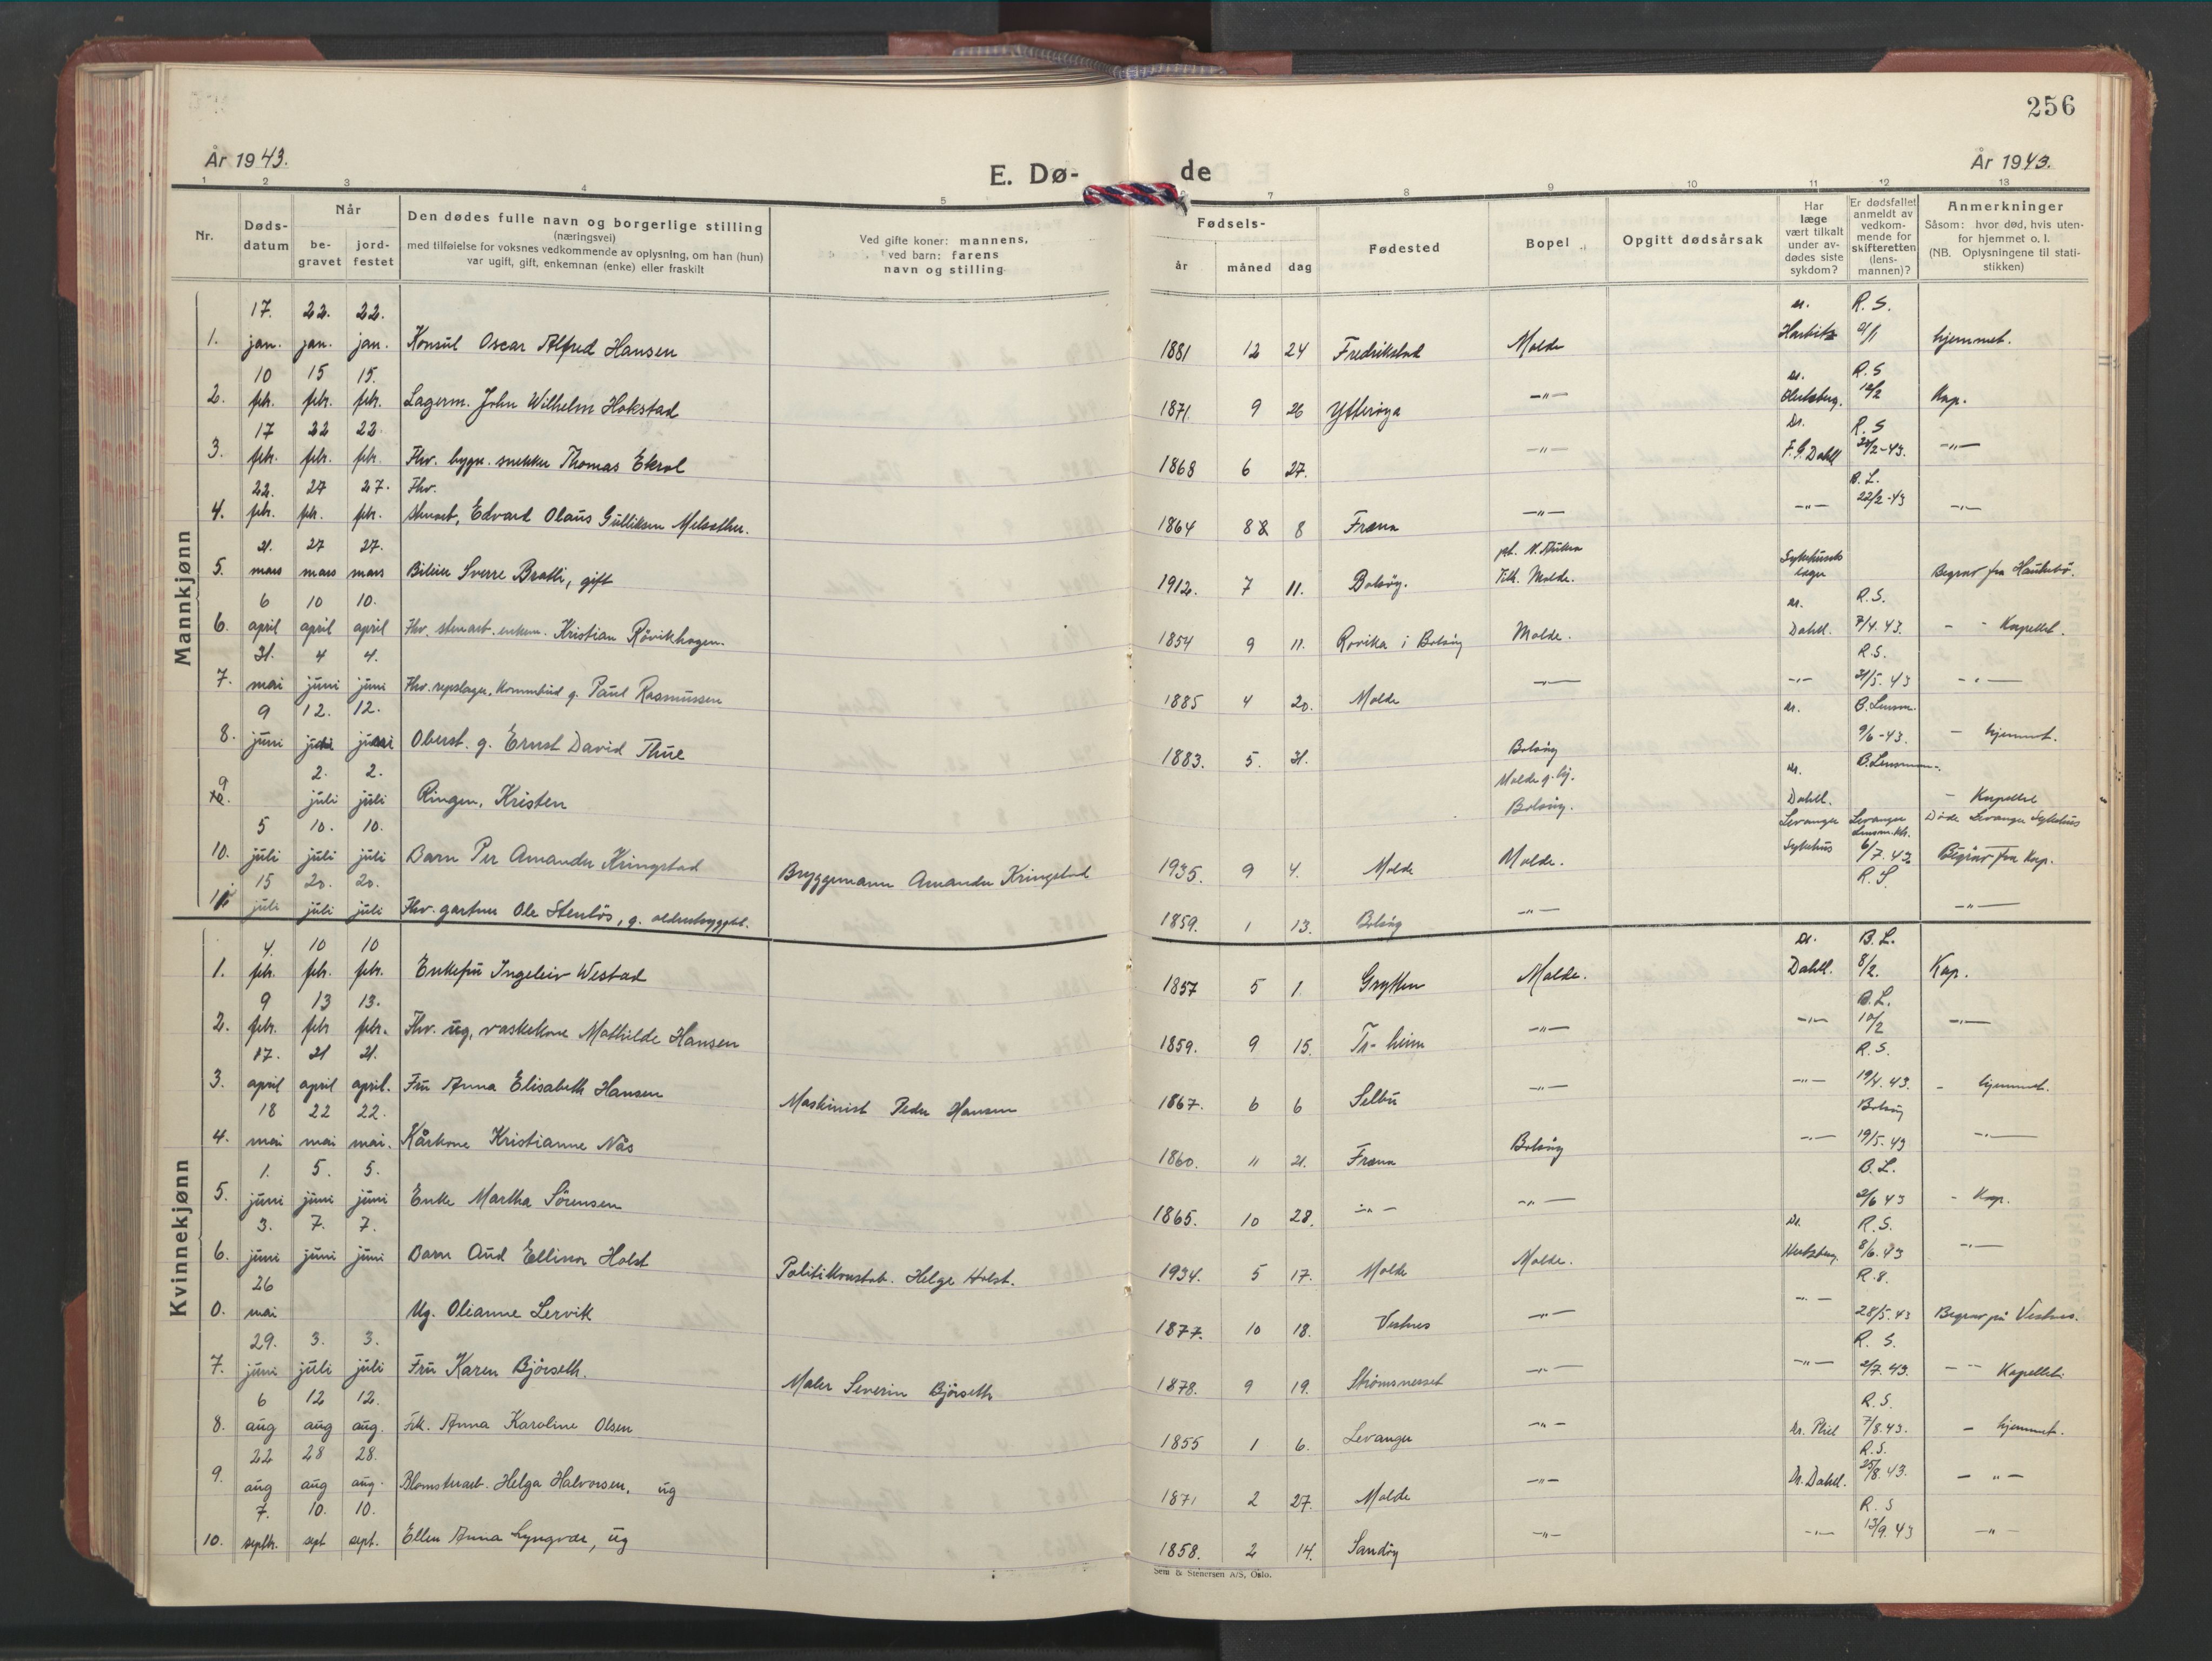 256
År 1943.
E. Dø-
de
År 1943.
1 2 3 4 5 6 7 8 9 10 11 12 13
Nr.
Døds-
datum
Når
be-
gravet
jord-
festet
Den dødes fulle navn og borgerlige stilling
(næringsvei)
med tilføielse for voksnes vedkommende av oplysning, om han (hun)
var ugift, gift, enkemnan (enke) eller fraskilt
Ved gifte koner: mannens,
ved barn: farens
navn og stilling
Fødsels-
år måned dag
Fødested
Bopel
Opgitt dødsårsak
Har
læge
vært tilkalt
under av-
dødes siste
sykdom?
Er dødsfallet
anmeldt av
vedkom-
mende for
skifteretten
(lens-
mannen)?
Anmerkninger
Såsom: hvor død, hvis uten-
for hjemmet o. l.
(NB. Oplysningene til stati-
stikken)
Mannkjønn
17. 22. 22. dr. R. S.
1. jan. jan. jan. Konsul Oscar Alfred Hansen 1881 12 24 Fredrikstad Molde Harbitz hjemmet.
10 15 15. dr. R. S
2. feb. feb. feb. Lagerm. John Wilhelm Hokstad 1871. 9 26 Ytterøya —"— 12/2 Kap.
17 22 22 Dr. R. S
3. feb. feb. feb. Fhv. bygn. snekker Thomas Ekrol 1868 6 27. —"— F. G. Dahl /2-43. —"—
22. 27 27. Fhv. B. L.
4. feb. feb. feb. stenarb. Edvard Olaus Gulliksen Melsether. 1864 8 8 Fræna —"— —"— 22/2-43 —"—
21. 27 27. pt. N. Aukra Sykehusets
5. mars mars mars Bileier Sverre Bratli, gift 1912. 7 11. Bolsøy. Tilh. Molde. læge Begrav fra Haukebø.
6 10 10. dr. R. S.
6. april april april Fhv. stenarb. enkem. Kristian Røvikhagen. 1854 9 11. Røvika i Bolsøy Molde. Dahl. 7/4. 43. - " Kapellet.
31. 4 4. R. S.
7. mai juni juni Fhv. repslager, Kommbud g. Paul Rasmussen 1885 4 20. Molde —"— —"— /5. 43 —"—
9 12. 12. dr. B. Lensm.
8. juni juni juni Oberst. g. Ernst David Thue 1883. 5. 31. Bolsøy 9/6-43. - hjemmet.
2. 2. Molde g. hj. dr. B. Lensmann.
9 juli juli Ringen, Kristen Bolsøy. Dahl. - Kapellet
5 10. 10. Levanger Levanger Døde Levanger Sykehus
10. juli juli juli Barn Per Amandus Kringstad Bryggemann Amandus Kringstad 1935. 9 4. Molde Molde. Sykehus 6/7. 43 Begrav fra Kap.
15 20. 20. R. S.
11 juli juli juli Fhv. gartner Ole Stenløs, g. 1859. 1 13. Bolsøy —"— —"—
Kvinnekjønn
4. 10 10 dr. B. L.
1. feb. feb. feb. Enkefru Ingeleiv Westad 1857 5 1. Grytten Molde. Dahl. 8/2. Kap.
9 13 13. B. L.
2. feb. feb feb. Fhv. ug, vaskekone Mathilde Hansen 1859. 9 15. Tr-heim —"— —"— 10/2 —"—
17. 21 21. R. S.
3. april april april. Fru Anna Elisabeth Hansen Maskinist Peder Hansen 1867. 6 6 Selbu —"— —"— 19/4. 43. - hjemmet.
18 22 22. Bolsøy
4. mai mai mai. Kårkone Kristianne Nås 1860. 11 21. Fræna Bolsøy —"— 19/5. 43 —"—
1. 5. 5. B. L.
5. juni juni juni Enke Martha Sørensen 1865. 10 28. —"— —"— 2/6 43 - Kap.
3. 7. 7. Dr. R. S.
6. juni juni juni Barn Aud Ellinor Holst Politikonstab. Helge Holst. 1934. 5 17. Molde Molde. Hertzberg. 8/6. 43 —"—
26 R. S.
0. mai Ug. Olianne Lervik 1877. 10 18. Vestnes —"— —"— 28/5. 43 Begrav på Vestnes.
29. 3. 3. R. S.
7. juni juli juli Fru Karen Bjørseth. Maler Severin Bjørseth 1878. 9 19. Strømsnesset —"— —"— 2/7. 43. — " Kapellet.
6 12 12. R. S.
8. aug aug aug. Frk. Anna Karoline Olsen 1855 1 6. Levanger —"— Dr. 7/8. 43. - hjemmet.
22 28 28. R. S.
9. aug aug aug. Blomsterarb. Helga Halvorsen, ug 1871 2 27. Molde —"— Dr. Dahl. 25/8. 43. — " —
7. 10. 10. R. S
10. septb. sept sept. Ellen Anna Lyngvær, ug 1858. 2 14. Sandøy —"— —"— 13/9. 43 —"—
Sem & Stenersen A/S, Oslo.